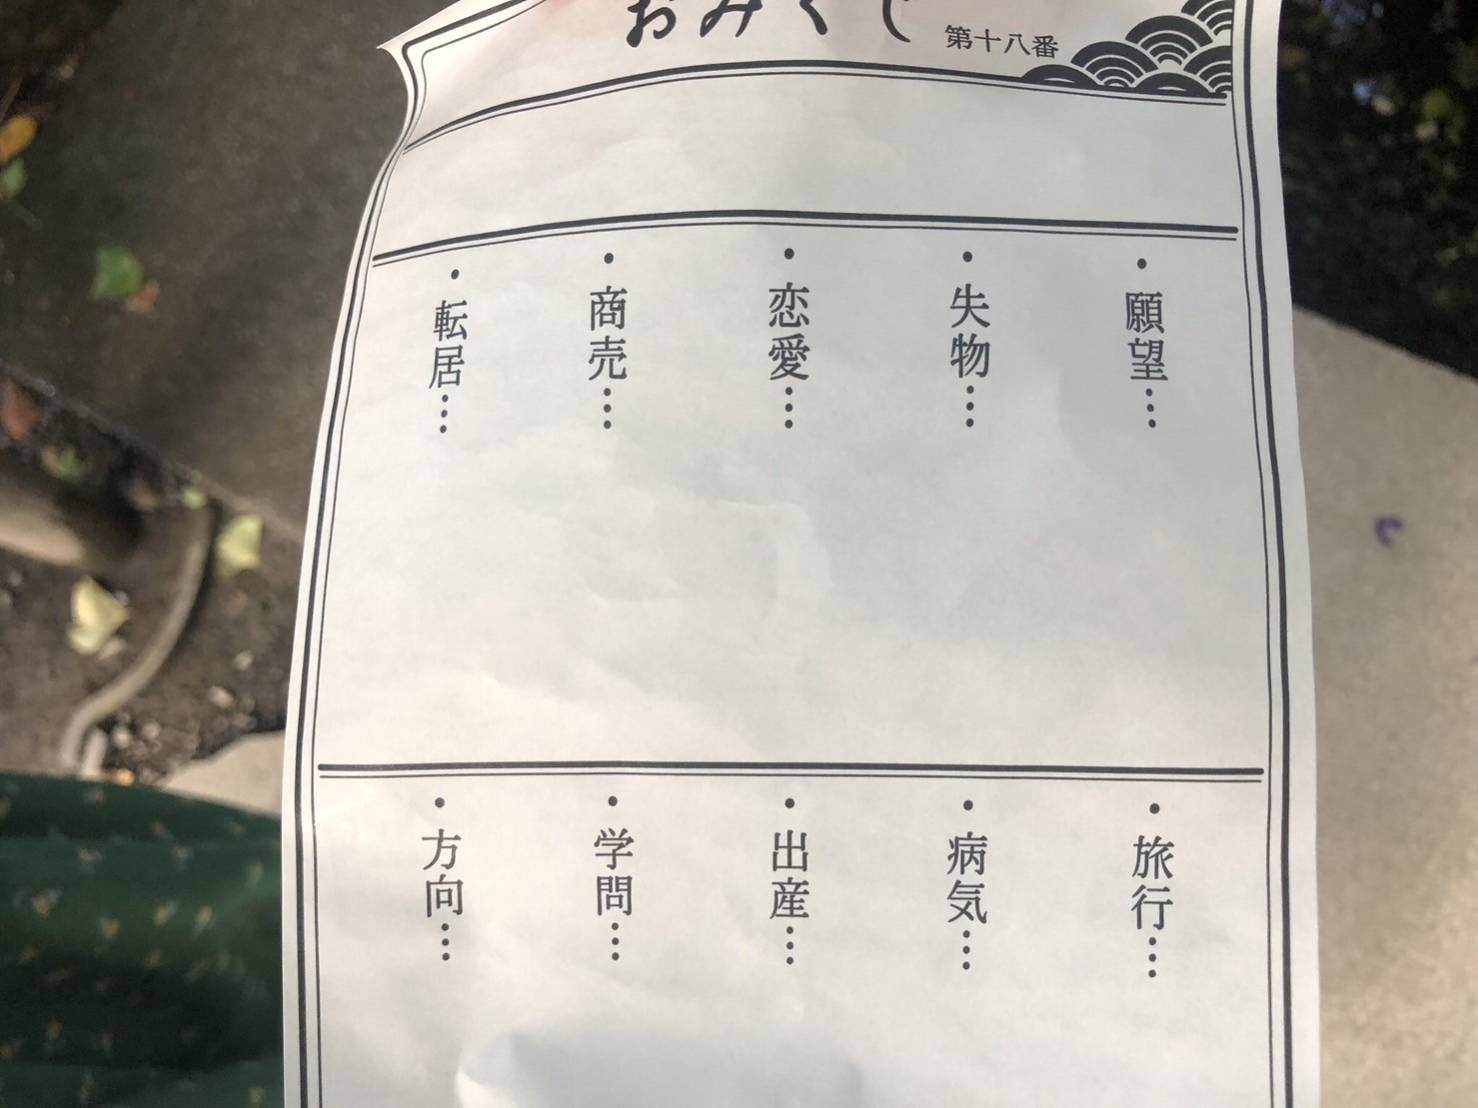 おみくじ
第十八番
・願望…
・失物…
・恋愛…
・商売…
・転居…
・旅行…
・病気…
・出産…
・学問…
・方向…